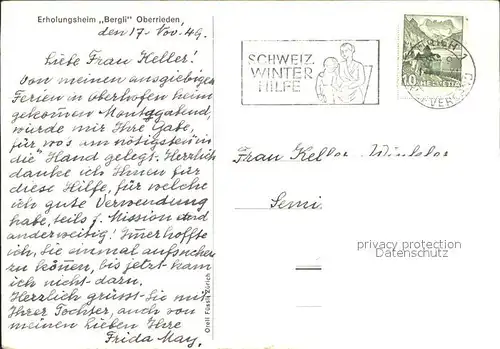 Erholungsheim „Bergli" Oberrieden
den 17. Nov. 49.
Liebe Frau Keller!
Von meinen ausgiebigen
Ferien in Oberhofen heim
gekommen Montagabend,
wurde mir Ihre Gabe,
für was am nötigsten in
die Hand gelegt. Herzlich
danke ich Ihnen für
diese Hilfe, für welche
ich gute Verwendung
habe, teils f. Mission und
anderweitig! Immer hoffte
ich, Sie einmal aufsuchen
zu können, bis jetzt kam
ich nicht dazu.
Herzlich grüsst Sie mit
Ihrer Tochter, auch von
meinen Lieben Ihre
Frida May.
Orell Füssli Zürich
SCHWEIZ.
WINTER
HILFE
10 HELVETIA
Frau Keller
privacy protection
Datenschutz